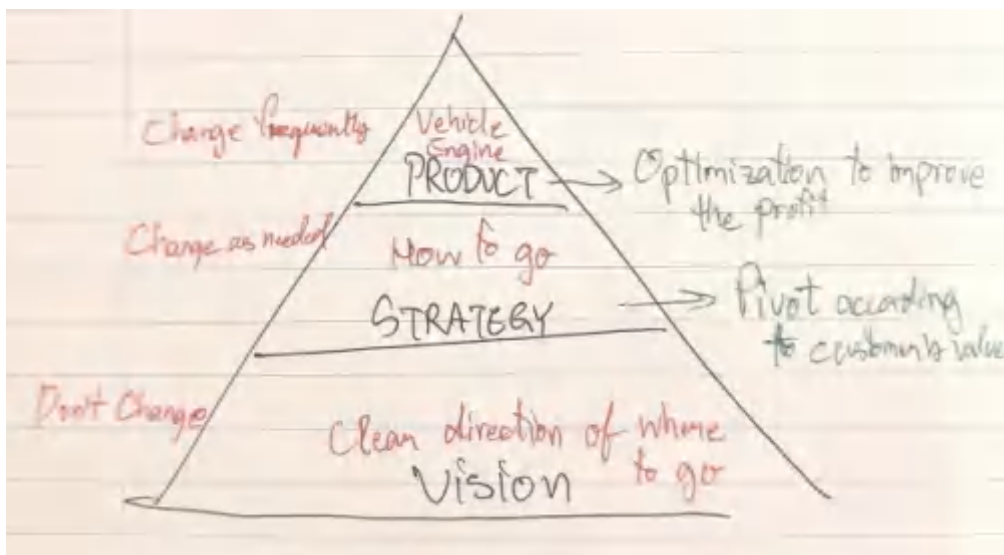 Change frequently
Vehicle
Engine
PRODUCT
Optimization to improve
the profit
Change as needed
How to go
STRATEGY
Pivot according
to customer's value
Don't Change
Clear direction of where
to go
Vision